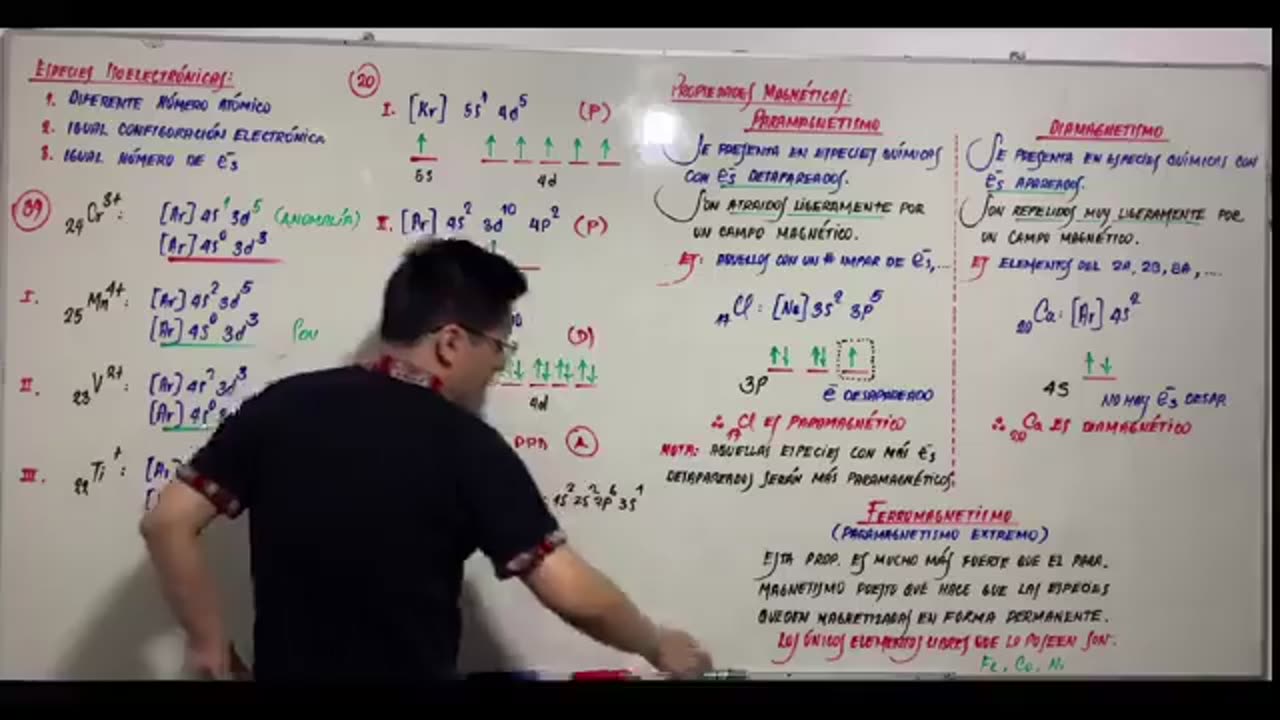 ESPECIES ISOELECTRÓNICAS:
1. DIFERENTE NÚMERO ATÓMICO
2. IGUAL CONFIGURACIÓN ELECTRÓNICA
3. IGUAL NÚMERO DE e⁻s
39
₂₄Cr³⁺: [Ar] 4s¹ 3d⁵ (ANOMALÍA)
[Ar] 4s⁰ 3d³
I. ₂₅Mn⁴⁺: [Ar] 4s² 3d⁵
[Ar] 4s⁰ 3d³
II. ₂₃V²⁺: [Ar] 4s² 3d³
[Ar] 4s⁰
III. ₂₂Ti⁺:
20
I. [Kr] 5s¹ 4d⁵ (P)
↑ ↑ ↑ ↑ ↑ ↑
5s 4d
II. [Ar] 4s² 3d¹⁰ 4p² (P)
(D)
↑↓ ↑↓ ↑↓
4d
PPD A
1s² 2s² 2p⁶ 3s¹
PROPIEDADES MAGNÉTICAS:
PARAMAGNETISMO
SE PRESENTA EN ESPECIES QUÍMICAS
CON e⁻s DESAPAREADOS.
SON ATRAIDOS LIGERAMENTE POR
UN CAMPO MAGNÉTICO.
EJ: AQUELLOS CON UN # IMPAR DE e⁻s,...
₁₇Cl: [Ne] 3s² 3p⁵
↑↓ ↑↓ ↑
3p
e⁻ DESAPAREADO
∴ ₁₇Cl ES PARAMAGNÉTICO
NOTA: AQUELLAS ESPECIES CON MÁS e⁻s
DESAPAREADOS SERÁN MÁS PARAMAGNÉTICOS.
DIAMAGNETISMO
SE PRESENTA EN ESPECIES QUÍMICAS CON
e⁻s APAREADOS.
SON REPELIDOS MUY LIGERAMENTE POR
UN CAMPO MAGNÉTICO.
EJ ELEMENTOS DEL 2A, 2B, 8A, ...
₂₀Ca: [Ar] 4s²
↑↓
4s
NO HAY e⁻s DESAP.
∴ ₂₀Ca ES DIAMAGNÉTICO
FERROMAGNETISMO
(PARAMAGNETISMO EXTREMO)
ESTA PROP. ES MUCHO MÁS FUERTE QUE EL PARA.
MAGNETISMO PUESTO QUE HACE QUE LAS ESPECIES
QUEDEN MAGNETIZADAS EN FORMA PERMANENTE.
LOS ÚNICOS ELEMENTOS LIBRES QUE LO POSEEN SON:
Fe, Co, Ni